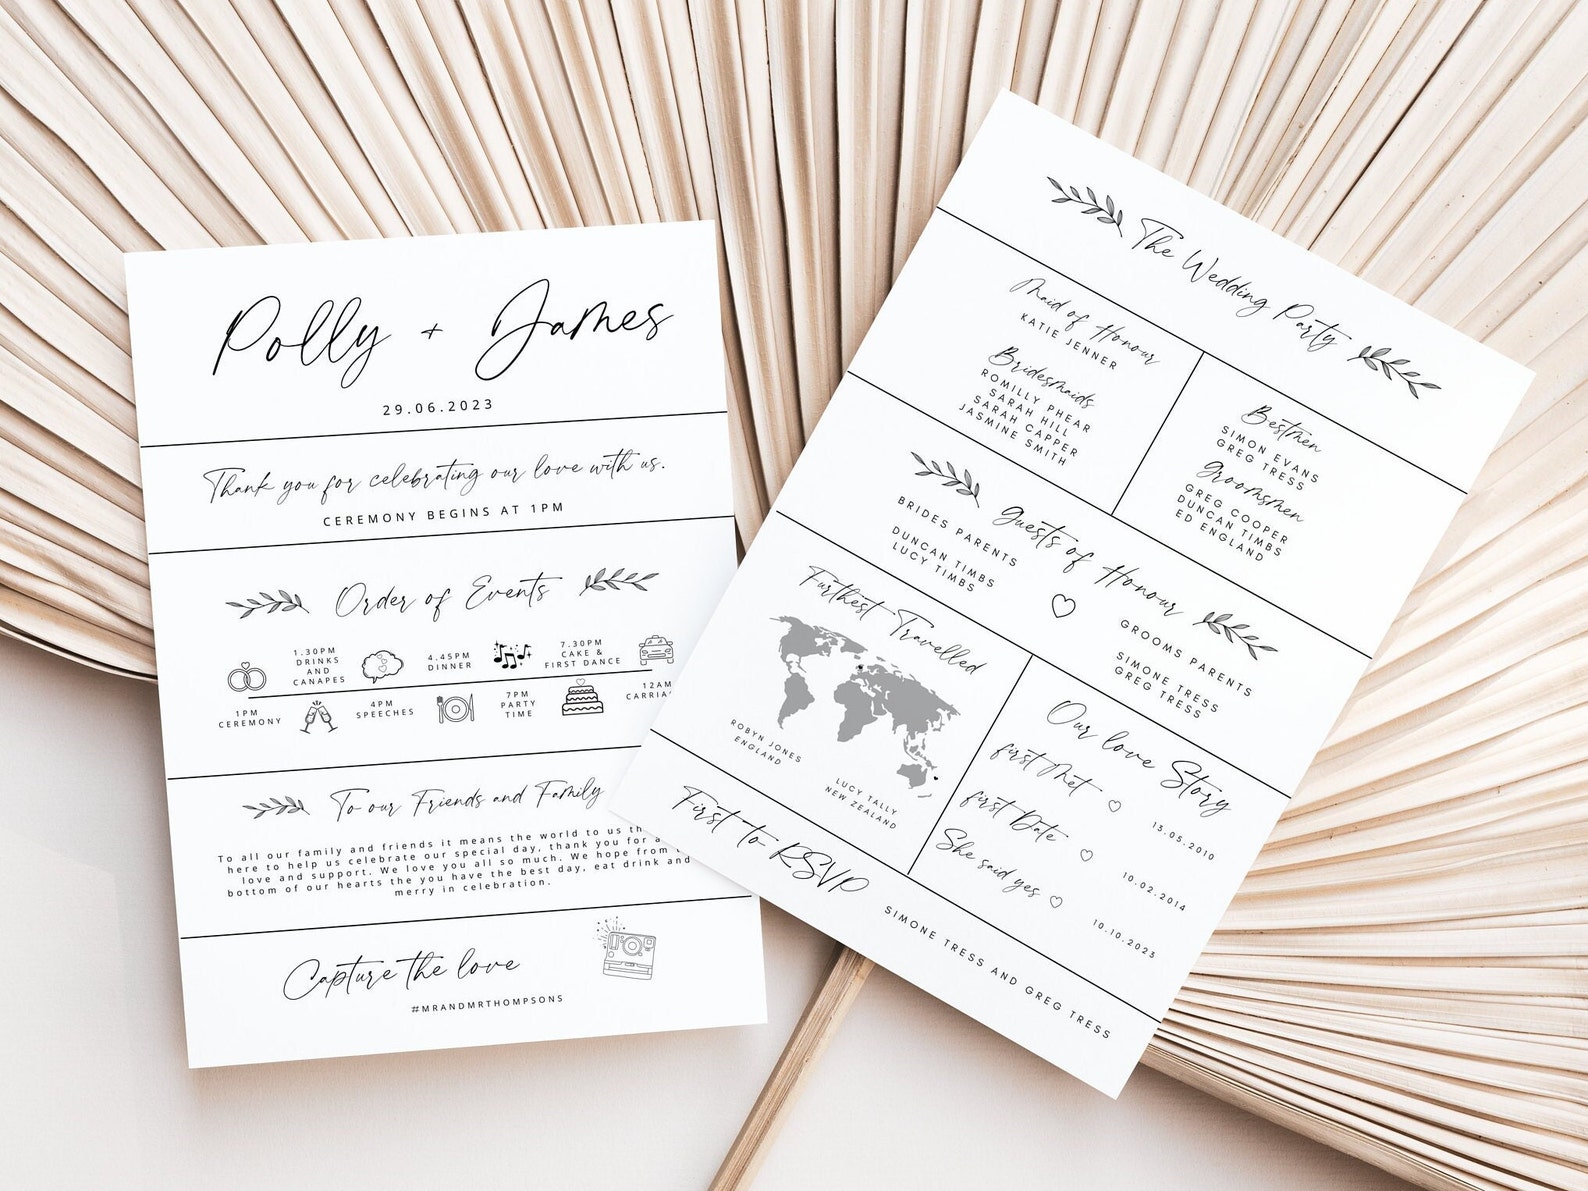 Polly + James
29.06.2023
Thank you for celebrating our love with us.
CEREMONY BEGINS AT 1PM
Order of Events
1.30PM
DRINKS
AND
CANAPES
4.45PM
DINNER
7.30PM
CAKE &
FIRST DANCE
1PM
CEREMONY
4PM
SPEECHES
7PM
PARTY
TIME
12AM
To our Friends and Family
To all our family and friends it means the world to us
here to help us celebrate our special day, thank you for
love and support. We love you all so much. We hope from
bottom of our hearts the you have the best day, eat drink and
merry in celebration.
Capture the love
#MRANDMRTHOMPSONS
The Wedding Party
Maid of Honour
KATIE JENNER
Bridesmaids
ROMILLY PHEAR
SARAH HILL
SARAH CAPPER
JASMINE SMITH
Bestmen
SIMON EVANS
GREG TRESS
Groomsmen
GREG COOPER
DUNCAN TIMBS
ED ENGLAND
Guests of Honour
BRIDES PARENTS
DUNCAN TIMBS
LUCY TIMBS
GROOMS PARENTS
SIMONE TRESS
GREG TRESS
Furthest Travelled
ROBYN JONES
ENGLAND
LUCY TALLY
NEW ZEALAND
Our love Story
first Met
15.05.2010
first Date
10.02.2014
She said yes
10.10.2023
First to RSVP
SIMONE TRESS AND GREG TRESS